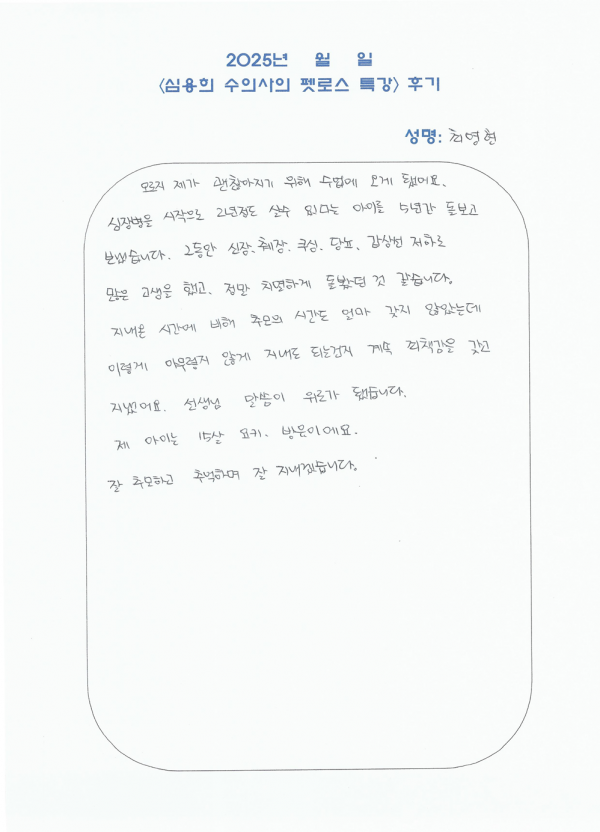 2025년 월 일
<심용희 수의사의 펫로스 특강> 후기
성명: 최영현
오로지 제가 괜찮아지기 위해 수업에 오게 됐어요.
심장병을 시작으로 2년정도 살수 있다는 아이를 5년간 돌보고
보냈습니다. 그동안 신장, 췌장, 쿠싱, 당뇨, 갑상선 저하로
많은 고생을 했고, 정말 치열하게 돌봤던 것 같습니다.
지내온 시간에 비해 추모의 시간도 얼마 갖지 않았는데
이렇게 아무렇지 않게 지내도 되는건지 계속 죄책감을 갖고
지냈어요. 선생님 말씀이 위로가 됐습니다.
제 아이는 15살 요키, 방운이에요.
잘 추모하고 추억하며 잘 지내겠습니다.